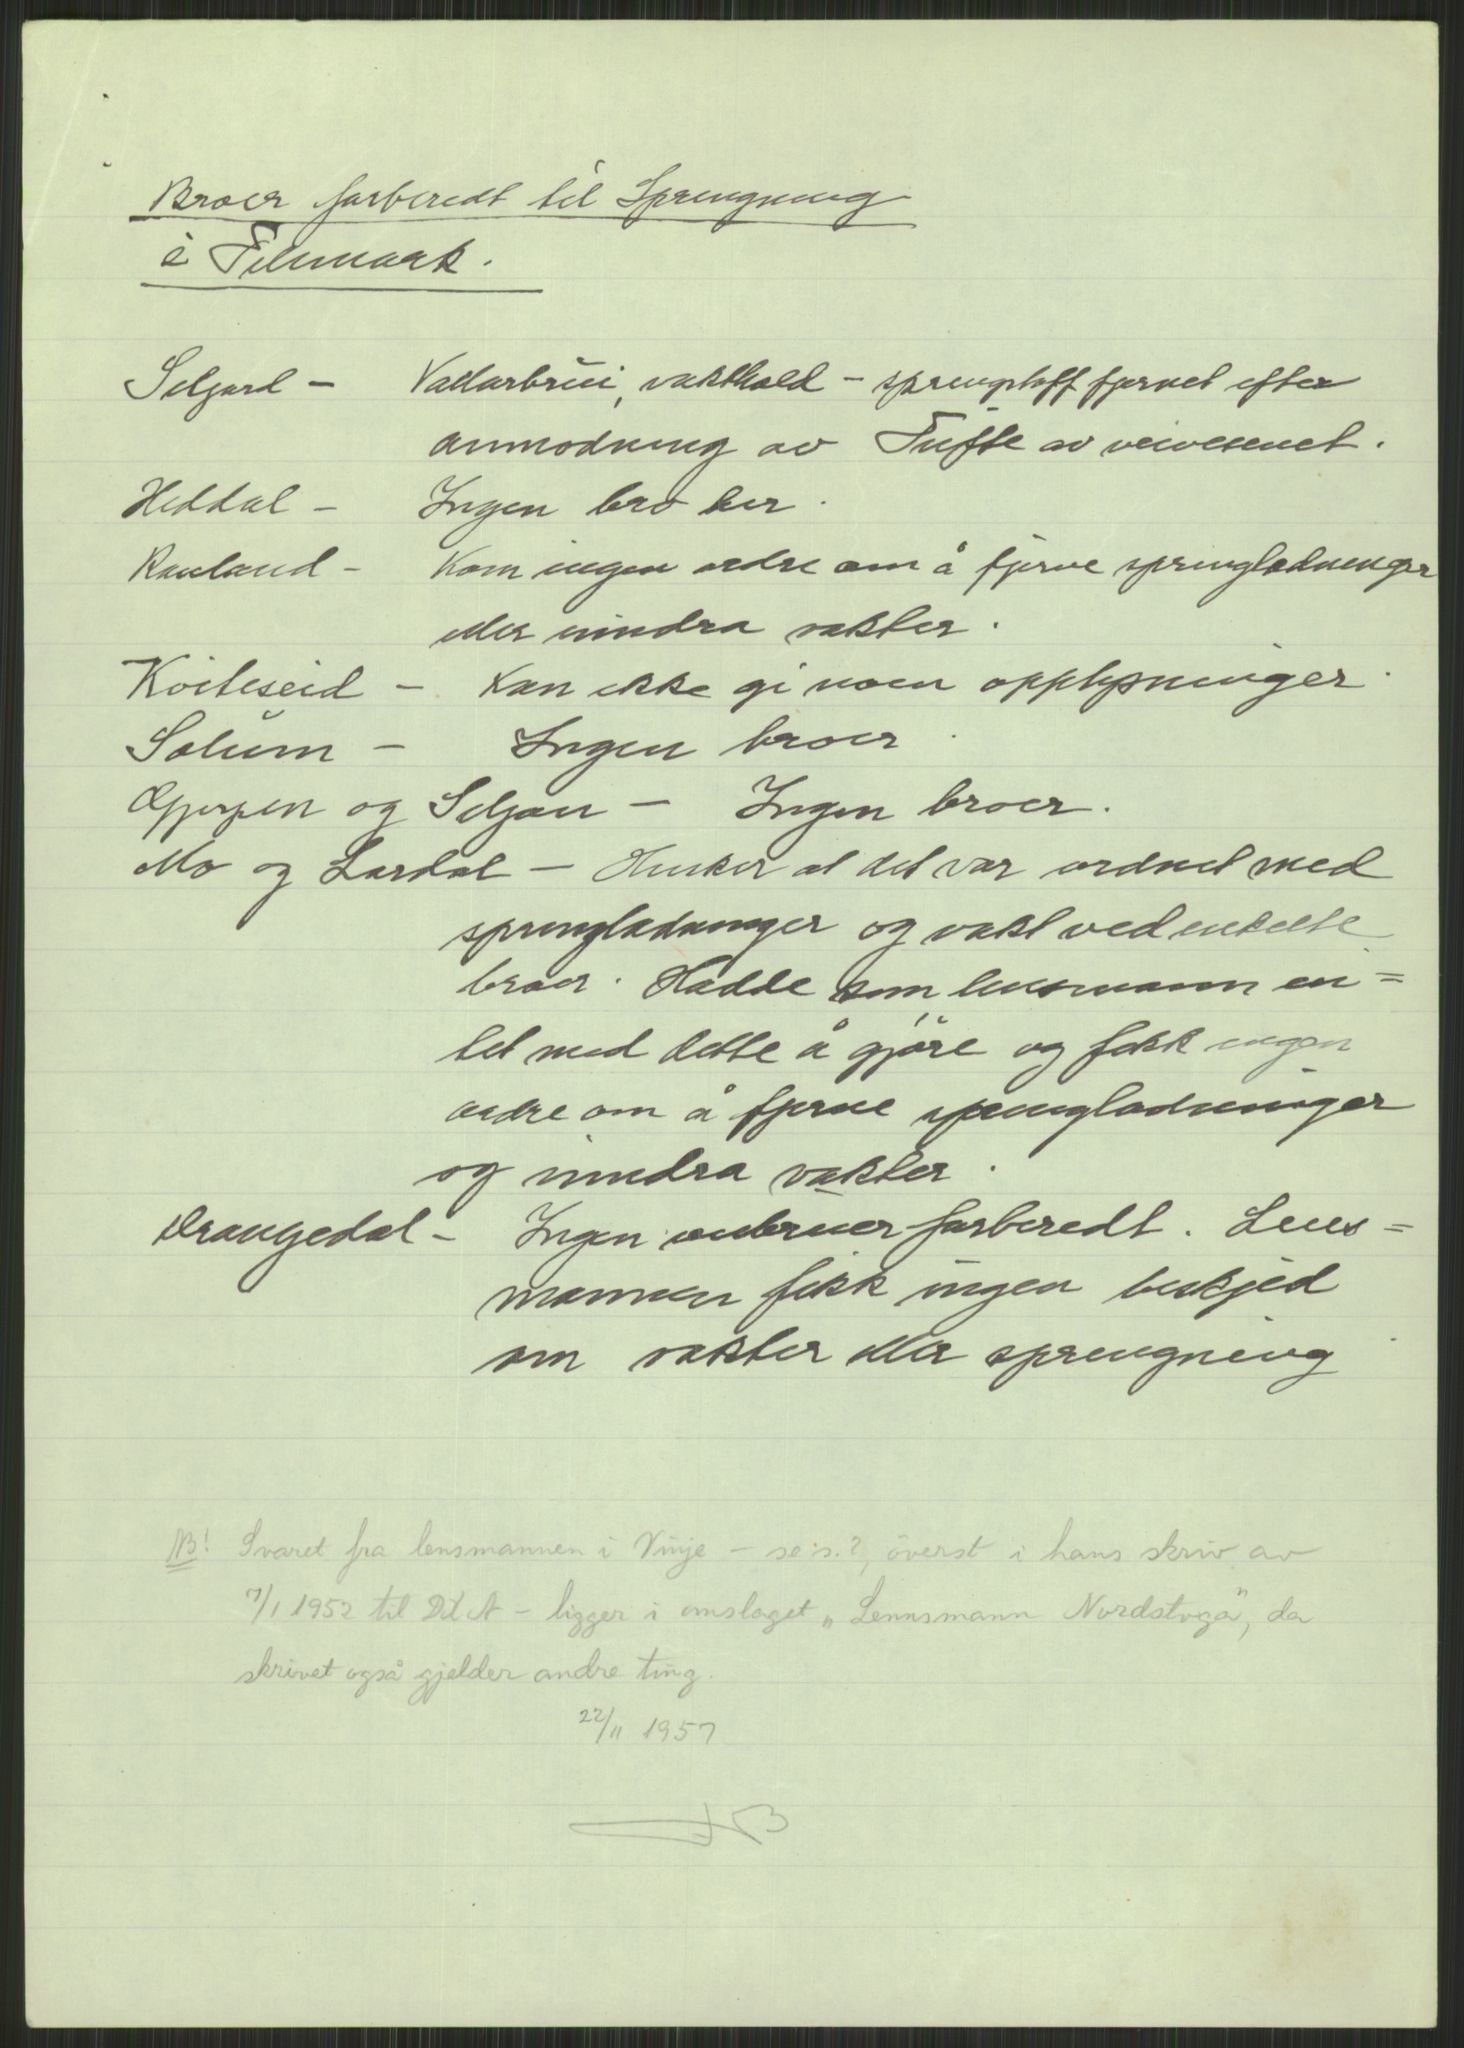 Broer forberedt til Sprengning
i Telemark.
Seljord – Vallarbrui, vakthold – sprengstoff fjernet efter
anmodning av Tufte av veivesenet.
Heddal – Ingen bro her.
Rauland – Kom ingen ordre om å fjerne sprengladninger
eller inndra vakter.
Kviteseid – Kan ikke gi noen opplysninger.
Solum – Ingen broer.
Gjerpen og Siljan – Ingen broer.
Mo og Lårdal – Husker at det var ordnet med
sprengladninger og vakt ved enkelte
broer. Hadde som lensmann in=
tet med dette å gjöre og fikk ingen
ordre om å fjerne sprengladninger
og inndra vakter.
Drangedal – Ingen bruer forberedt. Lens=
mannen fikk ingen beskjed
om vakter eller sprengning
NB! Svaret fra lensmannen i Vinje – se s. 2, överst i hans skriv av
7/1 1952 til – ligger i omslaget „Lennsmann Nordstoga”, da
skrivet også gjelder andre ting.
22/11 1957